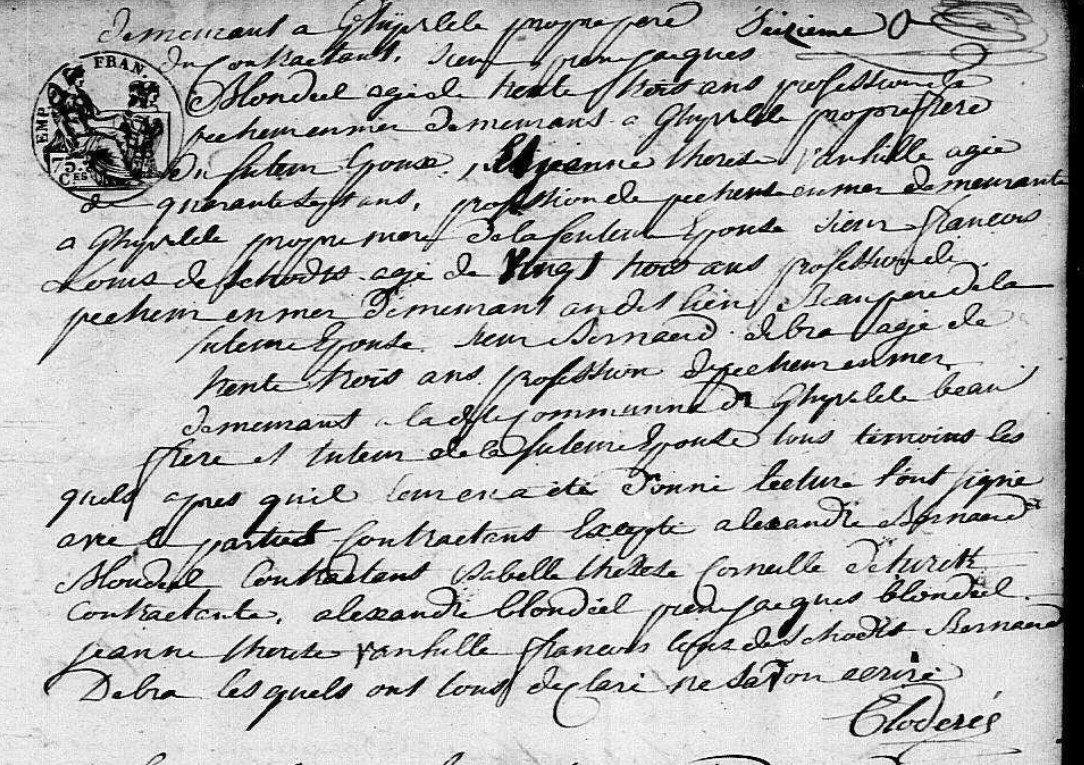 demeurant a Ghyvelde propre pere Seizieme
du Contractant, sieur pierre jacques
EMP. FRAN.
75. C.ES
Blondeel agé de trente trois ans profession de
pecheur en mer demeurans a Ghyvelde propre frere
du futeur Epoux, Et jeanne therese vanhille agée
de quarante sept ans, profession de pecheuse en mer demeurante
a Ghyvelde propre mere de la feuteure Epouse sieur francois
Louis de schodts agé de vingt trois ans profession de
pecheur en mer demeurant au dit lieu Beau pere de la
futeure Epouse sieur Bernard debra agé de
trente trois ans profession de pecheur en mer
demeurant a la dite Communne de Ghyvelde beau
frere et tuteur de la futeure Epouse tous temoins les
quels apres quil leur en a été donné lecture l'ont signé
avec parties Contractans Excepté alexandre Bernard
Blondeel Contractans isabelle therese Corneille deturck
Contractante, alexandre blondéel pierre jacques blondeel
jeanne therese vanhille francois louis de schodts Bernard
Debra les quels ont tous declaré ne savoir ecrire